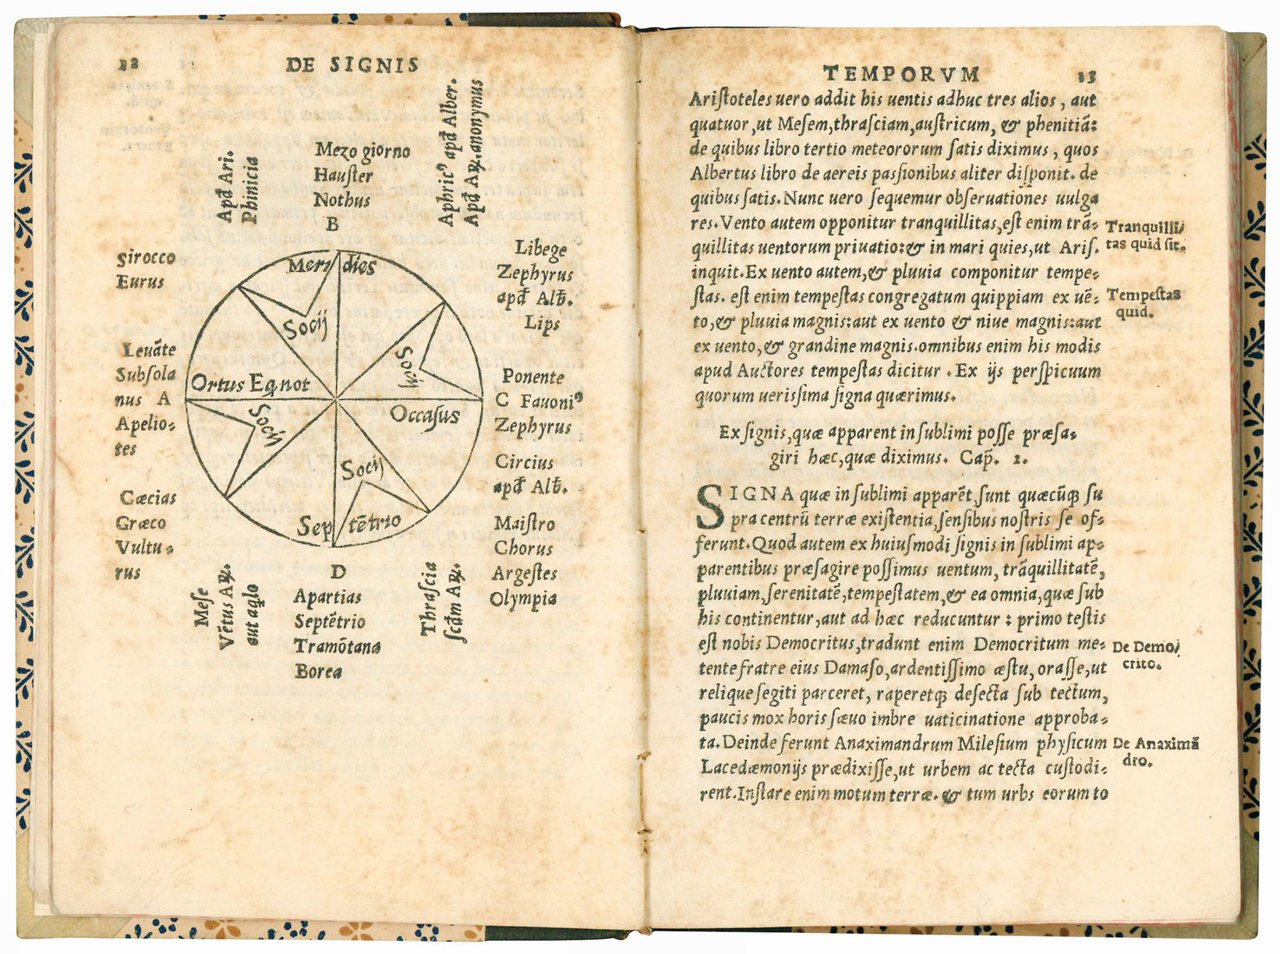 12
DE SIGNIS
Apđ Ari.
Phinicia
Mezo giorno
Hauſter
Nothus
B
Aphric⁹ apđ Alber.
Apđ AR. anonymus
ſirocco
Eurus
Libege
Zephyrus
apđ Alb.
Lips
Meri dies
Socij
Socij
Leuāte
Subſola
nus A
Apelio-
tes
Ortus Eqnot
Occaſus
Ponente
C Fauoni⁹
Zephyrus
Socij
Socij
Circius
apđ Alb.
Sep tētrio
Cæcias
Græco
Vultu-
rus
Maiſtro
Chorus
Argeſtes
Olympia
Meſe
Vētus AR.
aut aqlo
D
Apartias
Septētrio
Tramōtana
Borea
Thraſcia
ſcđm AR.
TEMPORVM
13
Ariſtoteles uero addit his uentis adhuc tres alios, aut
quatuor, ut Meſem, thraſciam, auſtricum, & phenitiā:
de quibus libro tertio meteororum ſatis diximus, quos
Albertus libro de aereis paſſionibus aliter diſponit. de
quibus ſatis. Nunc uero ſequemur obſeruationes uulga
res. Vento autem opponitur tranquillitas, eſt enim trā-
Tranquilli/
quillitas uentorum priuatio: & in mari quies, ut Ariſ.
tas quid ſit.
inquit. Ex uento autem, & pluuia componitur tempe-
ſtas. eſt enim tempeſtas congregatum quippiam ex uē-
Tempeſtas
to, & pluuia magnis: aut ex uento & niue magnis: aut
quid.
ex uento, & grandine magnis. omnibus enim his modis
apud Auctores tempeſtas dicitur. Ex ijs perſpicuum
quorum ueriſsima ſigna quærimus.
Ex ſignis, quæ apparent in ſublimi poſſe præſa-
giri hæc, quæ diximus. Cap̄. 1.
SIGNA quæ in ſublimi apparēt, ſunt quæcūq; ſu
pra centrū terræ exiſtentia, ſenſibus noſtris ſe of-
ferunt. Quod autem ex huiuſmodi ſignis in ſublimi ap-
parentibus præſagire poſſimus uentum, trāquillitatē,
pluuiam, ſerenitatē, tempeſtatem, & ea omnia, quæ ſub
his continentur, aut ad hæc reducuntur: primo teſtis
eſt nobis Democritus, tradunt enim Democritum me-
De Demo/
tente fratre eius Damaſo, ardentiſſimo æſtu, oraſſe, ut
crito.
relique ſegiti parceret, raperetq; deſecta ſub tectum,
paucis mox horis ſæuo imbre uaticinatione approba-
ta. Deinde ferunt Anaximandrum Mileſium phyſicum
De Anaximā
Lacedæmonijs prædixiſſe, ut urbem ac tecta cuſtodi-
dro.
rent. Inſtare enim motum terræ. & tum urbs eorum to